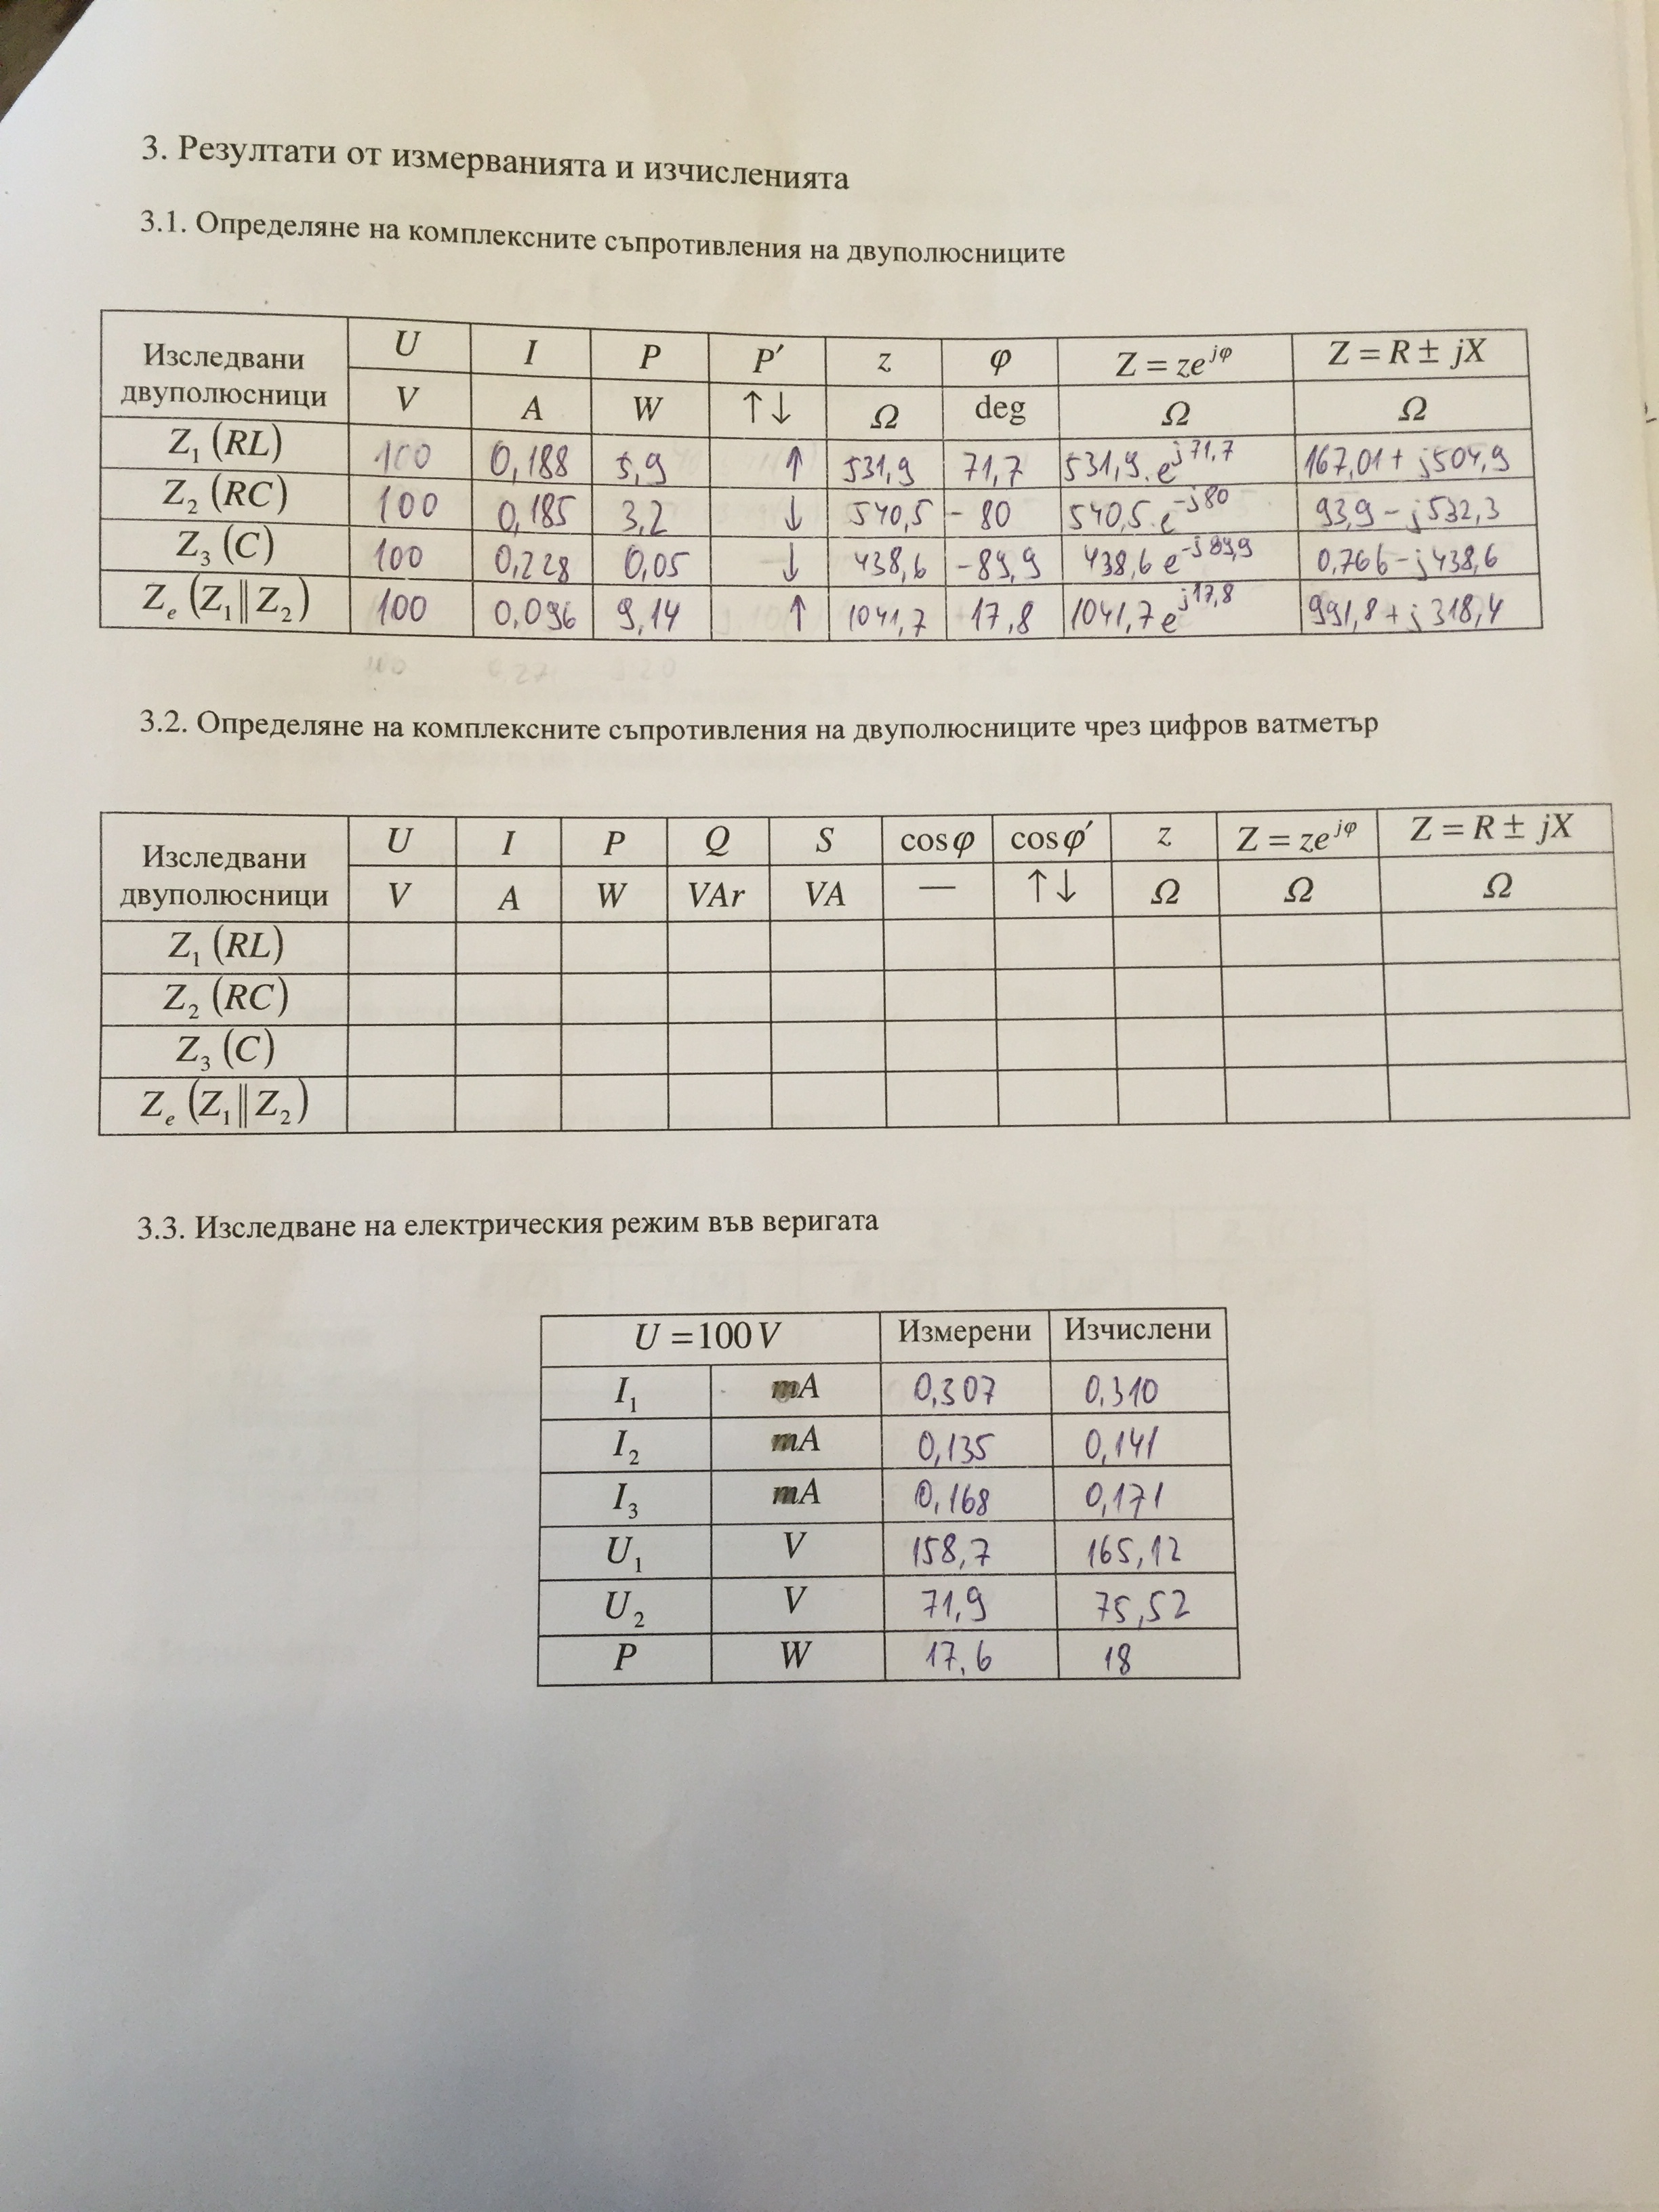 3. Резултати от измерванията и изчисленията
3.1. Определяне на комплексните съпротивления на двуполюсниците
Изследвани двуполюсници U I P P′ z φ Z = ze^jφ Z = R ± jX
V A W ↑↓ Ω deg Ω Ω
Z₁ (RL) 100 0,188 5,9 ↑ 531,9 71,7 531,9.e^j71,7 167,01 + j504,9
Z₂ (RC) 100 0,185 3,2 ↓ 540,5 - 80 540,5.e^-j80 93,9 - j532,3
Z₃ (C) 100 0,228 0,05 ↓ 438,6 -89,9 438,6 e^-j89,9 0,766 - j438,6
Zₑ (Z₁||Z₂) 100 0,096 9,14 ↑ 1041,7 17,8 1041,7 e^j17,8 991,8 + j318,4
3.2. Определяне на комплексните съпротивления на двуполюсниците чрез цифров ватметър
Изследвани двуполюсници U I P Q S cosφ cosφ′ z Z = ze^jφ Z = R ± jX
V A W VAr VA — ↑↓ Ω Ω Ω
Z₁ (RL)
Z₂ (RC)
Z₃ (C)
Zₑ (Z₁||Z₂)
3.3. Изследване на електрическия режим във веригата
U = 100 V Измерени Изчислени
I₁ mA 0,307 0,310
I₂ mA 0,135 0,141
I₃ mA 0,168 0,171
U₁ V 158,7 165,12
U₂ V 71,9 75,52
P W 17,6 18